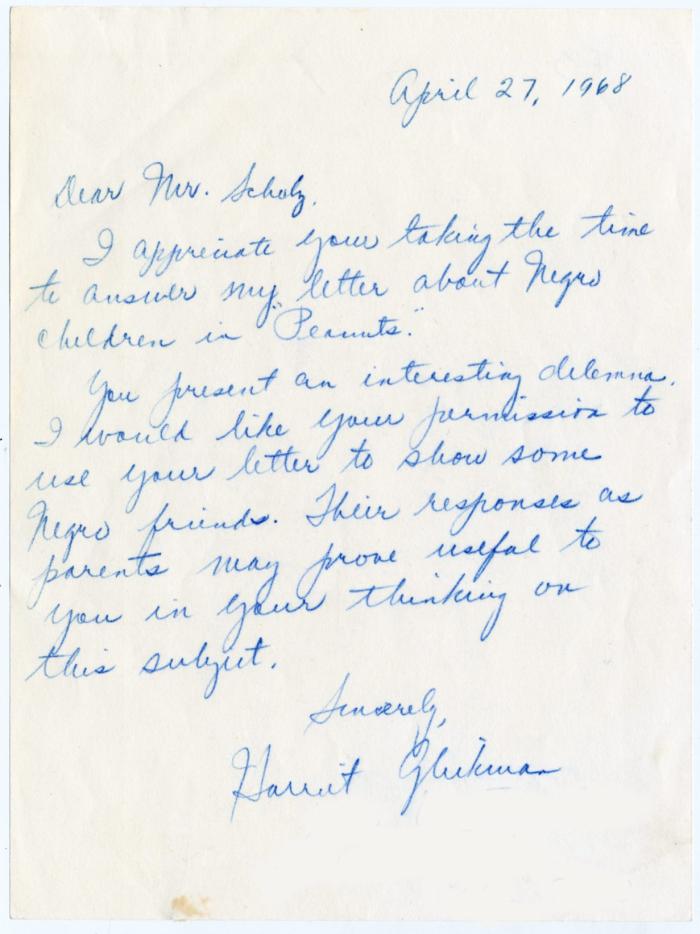 April 27, 1968
Dear Mr. Schulz,
I appreciate your taking the time
to answer my letter about Negro
children in "Peanuts."
You present an interesting dilemna.
I would like your permission to
use your letter to show some
Negro friends. Their responses as
parents may prove useful to
you in your thinking on
this subject.
Sincerely,
Harriet Glickman